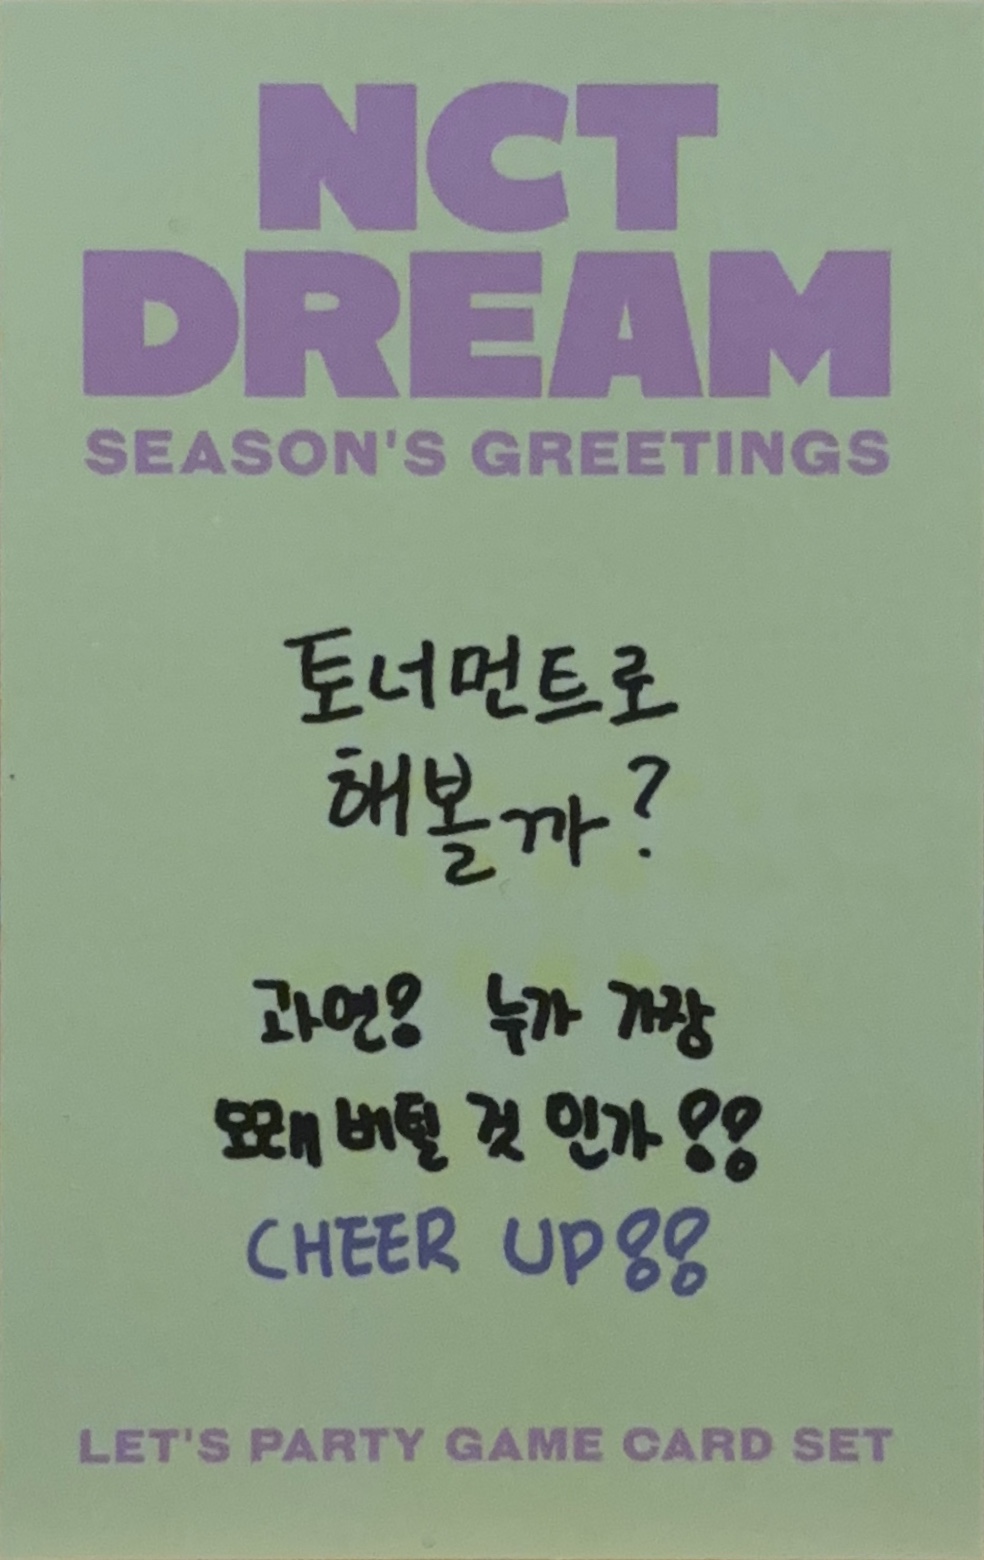 NCT
DREAM
SEASON'S GREETINGS
토너먼트로
해볼까?
과연? 누가 가장
오래 버틸 것 인가!!
CHEER UP!!
LET'S PARTY GAME CARD SET